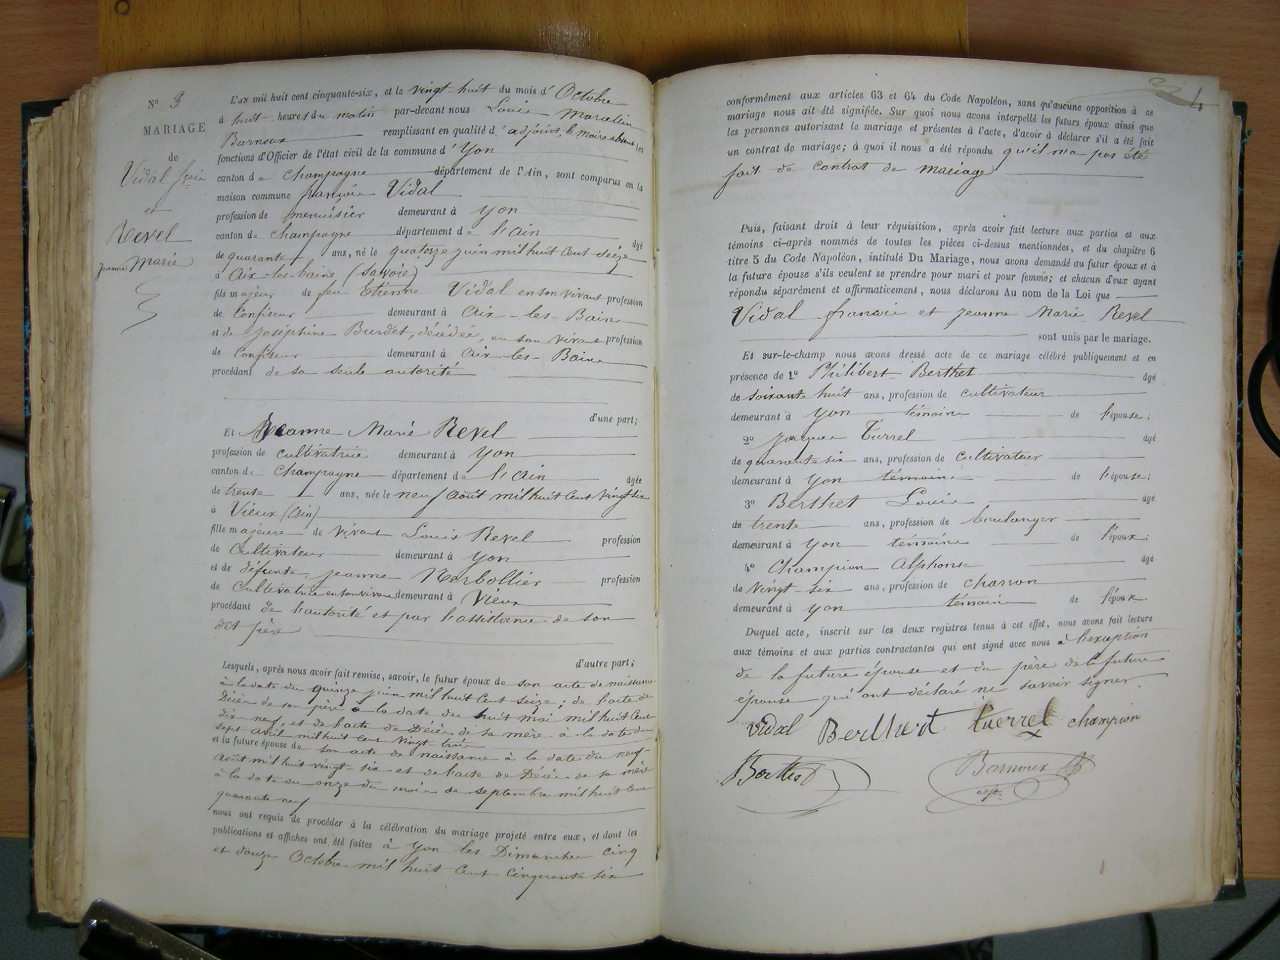 N° 3
MARIAGE
de
Vidal françois
et
Revel
jeanne Marie
L'AN mil huit cent cinquante-six, et le vingt-huit du mois d'Octobre
à huit heures du matin par-devant nous Louis Marcelin
Barnoux remplissant en qualité d'adjoint, le maire absent les
fonctions d'Officier de l'état civil de la commune d'Yon
canton de Champagne département de l'Ain, sont comparus en la
maison commune françois Vidal
profession de menuisier demeurant à Yon
canton de Champagne département de l'ain âgé
de quarante ans, né le quatorze juin mil huit cent seize
à Aix-les-bains (Savoie)
fils majeur de feu Etienne Vidal en son vivant profession
de Confiseur demeurant à Aix-les-Bains
et de Joséphine Burdet, décédée, en son vivant profession
de Confiseur demeurant à Aix-les-Bains
procédant de sa seule autorité
d'une part;
Et Jeanne Marie Revel
profession de cultivatrice demeurant à Yon
canton de Champagne département de l'ain âgée
de trente ans, née le neuf août mil huit cent vingt six
à Vieux (Ain)
fille majeure de vivant Louis Revel profession
de Cultivateur demeurant à Yon
et de défunte jeanne Norbollier profession
de Cultivatrice en son vivant demeurant à Vieux
procédant de l'autorité et par l'assistance de son
dit père
d'autre part;
Lesquels, après nous avoir fait remise, savoir, le futur époux de son acte de naissance
à la date du quinze juin mil huit cent seize; de l'acte de
Décès de son père, à la date du huit mai mil huit cent
dix neuf, et de l'acte de Décès de sa mère à la date du
sept avril mil huit cent vingt trois
et la future épouse de son acte de naissance à la date du neuf
août mil huit vingt-six et de l'acte de Décès de sa mère
à la date du onze du mois de septembre mil huit cent
quarante neuf
nous ont requis de procéder à la célébration du mariage projeté entre eux, et dont les
publications et affiches ont été faites à Yon les Dimanches cinq
et douze Octobre mil huit cent cinquante six
4
conformément aux articles 63 et 64 du Code Napoléon, sans qu'aucune opposition à ce
mariage nous ait été signifiée. Sur quoi nous avons interpellé les futurs époux ainsi que
les personnes autorisant le mariage et présentes à l'acte, d'avoir à déclarer s'il a été fait
un contrat de mariage; à quoi il nous a été répondu qu'il n'a pas été
fait de contrat de mariage
Puis, faisant droit à leur réquisition, après avoir fait lecture aux parties et aux
témoins ci-après nommés de toutes les pièces ci-dessus mentionnées, et du chapitre 6
titre 5 du Code Napoléon, intitulé Du Mariage, nous avons demandé au futur époux et à
la future épouse s'ils veulent se prendre pour mari et pour femme; et chacun d'eux ayant
répondu séparément et affirmativement, nous déclarons Au nom de la Loi que
Vidal françois et jeanne Marie Revel
sont unis par le mariage.
Et sur-le-champ nous avons dressé acte de ce mariage célébré publiquement et en
présence de 1° Philibert Berthet âgé
de soixante huit ans, profession de cultivateur
demeurant à Yon témoins de l'épouse;
2° jacques Turrel âgé
de quarante six ans, profession de cultivateur
demeurant à Yon témoins de l'épouse;
3° Berthet Louis âgé
de trente ans, profession de boulanger
demeurant à Yon témoins de l'époux;
4° Champion Alphonse âgé
de Vingt-six ans, profession de charron
demeurant à Yon témoin de l'époux.
Duquel acte, inscrit sur les deux registres tenus à cet effet, nous avons fait lecture
aux témoins et aux parties contractantes qui ont signé avec nous à l'exception
de la future épouse et du père de la future
épouse qui ont déclaré ne savoir signer.
Vidal Berthet tuerrel champion
Berthet Barnoux
adjt.